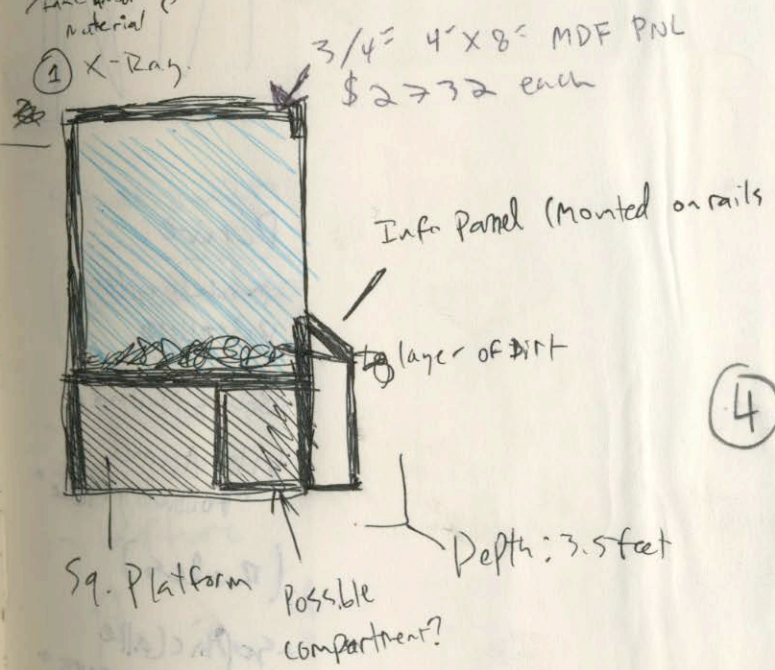 Material
① X-Ray.
3/4" 4' x 8' MDF PNL
$2732 each
Info Panel (Mounted on rails
top layer of Dirt
④
Depth: 3.5 feet
Sq. Platform
Possible
compartment?